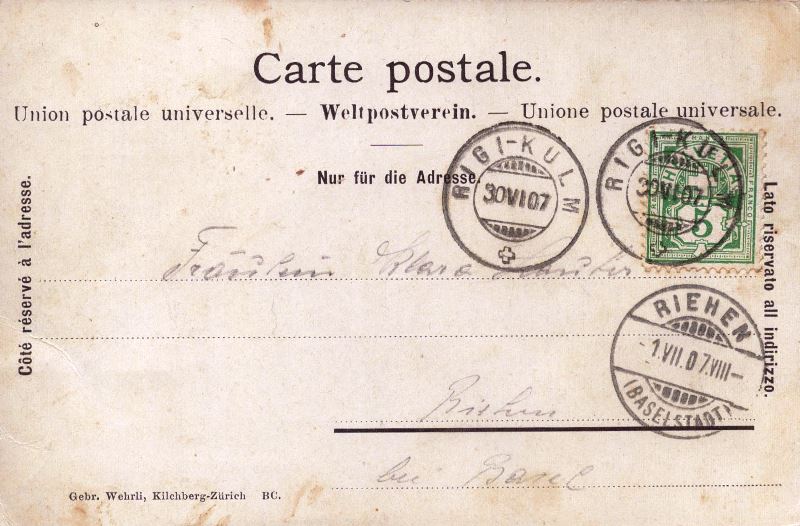 Carte postale.
Union postale universelle. — Weltpostverein. — Unione postale universale.
Nur für die Adresse.
Côté réservé à l'adresse.
Lato riservato all indirizzo.
RIGI-KULM
30 VI 07
RIGI-KULM
30 VI 07
5
RIEHEN
-1.VII.07.VIII-
(BASELSTADT)
Fräulein Klara
Riehen
bei Basel
Gebr. Wehrli, Kilchberg-Zürich BC.